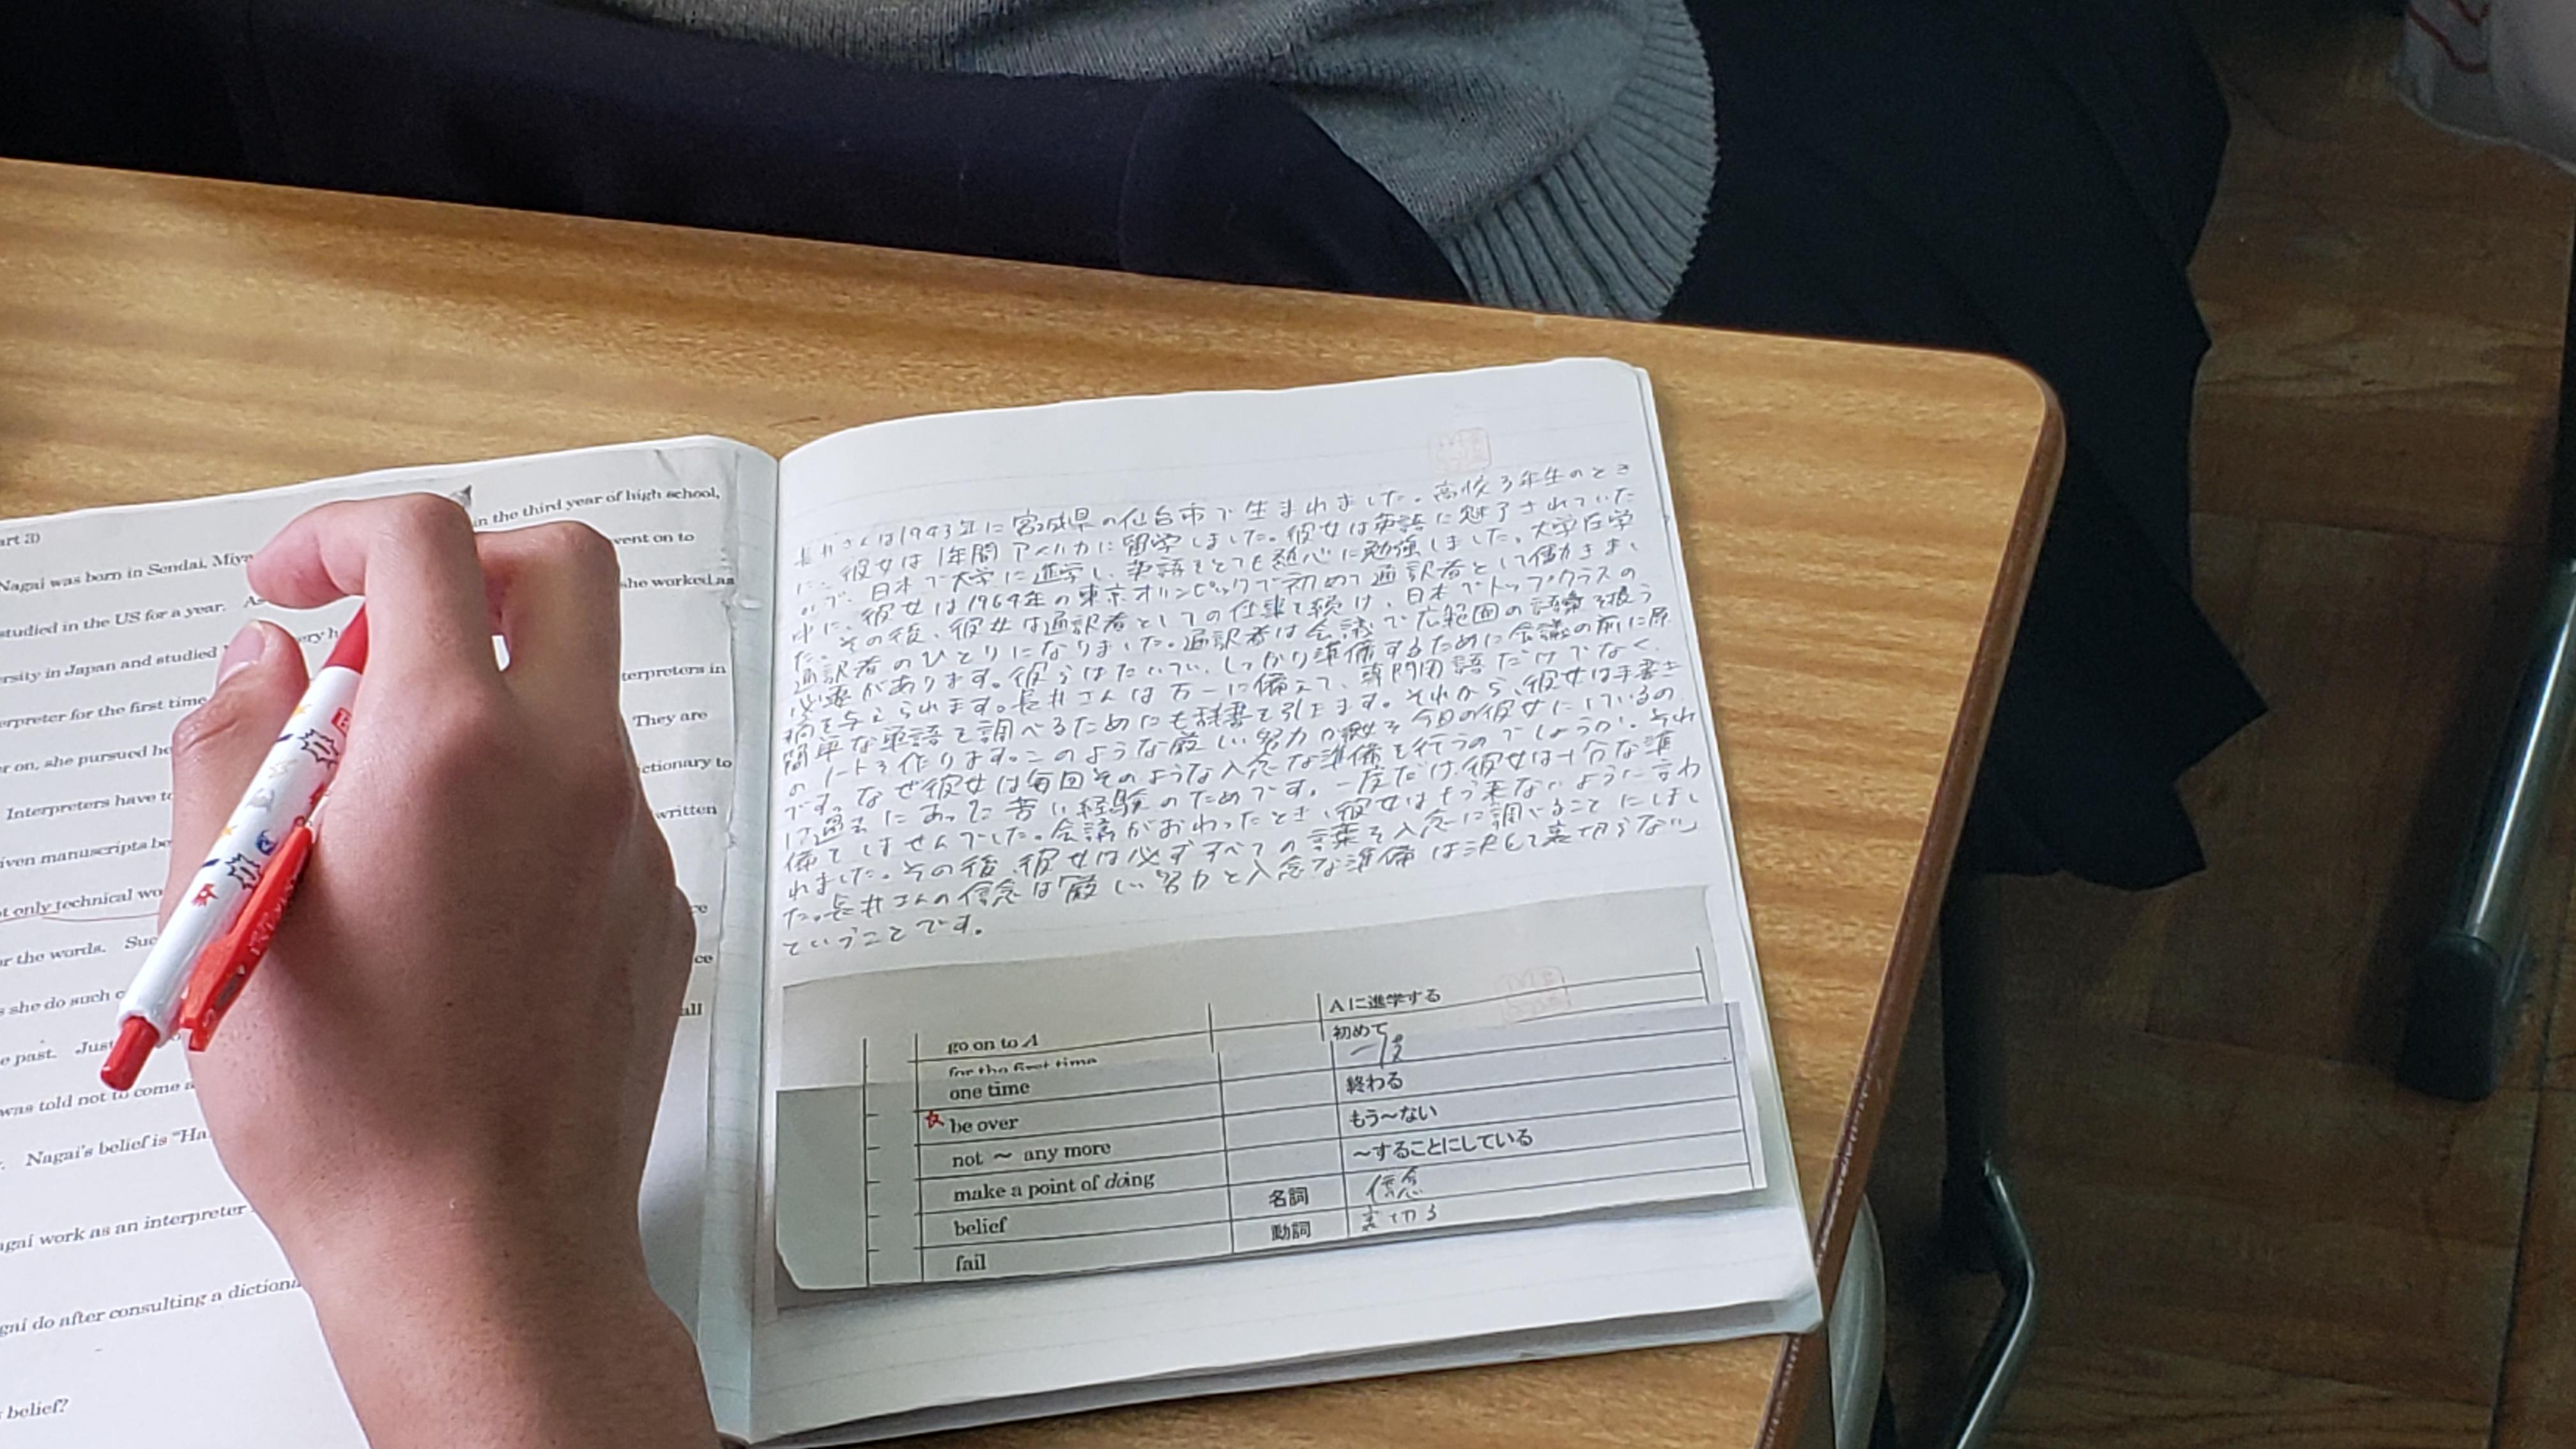 art 3)
in the third year of high school,
Nagai was born in Sendai, Miya
went on to
studied in the US for a year. As
she worked as
ersity in Japan and studied
ery h
erpreter for the first time
terpreters in
er on, she pursued he
They are
Interpreters have to
ctionary to
iven manuscripts be
written
ot only technical wo
or the words. Suc
ce
s she do such c
ce
e past. Just
all
was told not to come a
Nagai's belief is "Ha
agai work as an interpreter
gai do after consulting a dictiona
belief?
長井さんは1943年に宮城県の仙台市で生まれました。高校3年生のとき
に、彼女は1年間アメリカに留学しました。彼女は英語に魅了されていた
ので、日本で大学に進学し、英語をとても熱心に勉強しました。大学在学
中に、彼女は1964年の東京オリンピックで初めて通訳者として働きまし
た。その後、彼女は通訳者としての仕事を続け、日本でトップクラスの
通訳者のひとりになりました。通訳者は会議で広範囲の語彙を扱う
必要があります。彼らはたいてい、しっかり準備するために会議の前に原
稿を与えられます。長井さんは万一に備えて、専門用語だけでなく、
簡単な単語を調べるためにも辞書を引きます。それから、彼女は手書き
のノートを作ります。このような厳しい努力が彼女を今日の彼女にしているの
です。なぜ彼女は毎回そのような入念な準備を行うのでしょうか。それ
は過去にあった苦い経験のためです。一度だけ、彼女は十分な準
備をしませんでした。会議がおわったとき、彼女はもう来ないように言わ
れました。その後、彼女は必ずすべての言葉を入念に調べることにしまし
た。長井さんの信念は「厳しい努力と入念な準備は決して裏切らない」
ということです。
go on to A Aに進学する
for the first time 初めて
one time 一度
be over 終わる
not ～ any more もう～ない
make a point of doing ～することにしている
belief 名詞 信念
fail 動詞 裏切る